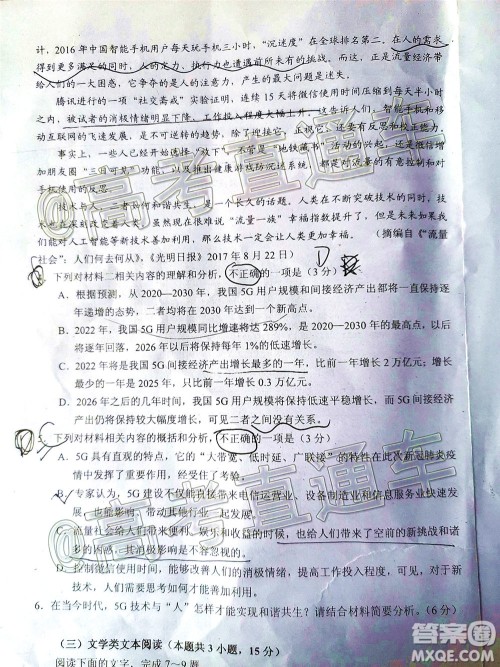 计，2016年中国智能手机用户每天玩手机三小时，“沉迷度”在全球排名第二。在人的需求
得到更多满足的同时，人的定力、执行力也遭遇前所未有的挑战。而这，正是流量经济带
给人们的一大困惑，它争夺的是人的注意力，产生的最大问题是迷失。
腾讯进行的一项“社交斋戒”实验证明，连续15天将微信使用时间压缩到每天半小时
之内，被试者的消极情绪明显下降，工作投入程度大幅上升。这告诉人们，智能手机和移
动互联网的飞速发展，是不可逆转的趋势，除了迎接它，
事实上，一些人已经开始选择“放下”，不管是“地铁藏书”活动的兴起，还是微信增
加朋友圈“三日可见”功能，以及推出健康游戏防沉迷系统，都是对流量的有意控制和对
手机使用的反思。
技术与人，二者如何和谐共生，是一个长久的话题。人在探索和突破技术的同时，技
术也在深刻改变着人类。虽然现在谈“流量一族”幸福指数提升与否，还为时尚早，但若
能对人工智能等新技术加以有效利用，那么技术一定会让人类更加幸福。（摘编自《“流量
社会”：人们何去何从》，《光明日报》2017年8月22日）
下列对材料二相关内容的理解和分析，不正确的一项是（3分）
A．根据预测，从2020—2030年，我国5G用户规模和间接经济产出都将一直保持逐
年递增的态势，二者都将在2030年达到一个新高点。
B．2022年，我国5G用户规模同比增速将达289%，是2020—2030年最高的，此后将
逐年回落，2026年以后将保持每年1%的低速增长。
C．2022年将是我国5G间接经济产出增长最多的一年，比前一年增长2万亿元；增长
最少的一年是2025年，只比前一年增长0.3万亿元。
D．2026年之后的几年时间，我国5G用户规模将保持低速平稳增长，而5G间接经济
产出仍将保持较大幅度增长，可见二者之间没有关系。
5．下列对材料相关内容的概括和分析，不正确的一项是（3分）
A．5G具有直观的特点，它的“大带宽、低时延、广联接”的特性在此次新冠肺炎疫
情中发挥了重要作用，经受住了考验。
B．专家认为，5G建设不仅能直接带来电信运营业、设备制造业和信息服务业快速发
展，也能影响、带动其他行业一起发展。
C．流量社会给人们带来便利、娱乐和收益的时候，也给人们带来了空前的新挑战和诸
多的困惑，其消极影响是不容忽视的。
D．控制微信使用时间，能够改善人们的消极情绪，提高工作投入程度，可见，对于新
技术，人们需要思考如何才能善加利用。
6．在当今时代，5G技术与“人”怎样才能实现和谐共生？请结合材料简要分析。（6分）
（三）文学类文本阅读（本题共3小题，15分）
阅读下面的文字，完成7～9题
@高考直通车
@高考直通车
答案圈
MXQE.COM